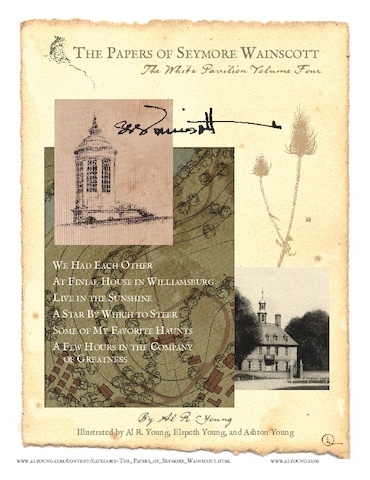 The Papers of Seymore Wainscott
The White Pavilion Volume Four
We Had Each Other
At Finial House in Williamsburg
Live in the Sunshine
A Star By Which to Steer
Some of My Favorite Haunts
A Few Hours in the Company
of Greatness
By Al R. Young
Illustrated by Al R. Young, Elspeth Young, and Ashton Young
www.alyoung.com/content/category-The_Papers_of_Seymore_Wainscott.html
www.alyoung.com